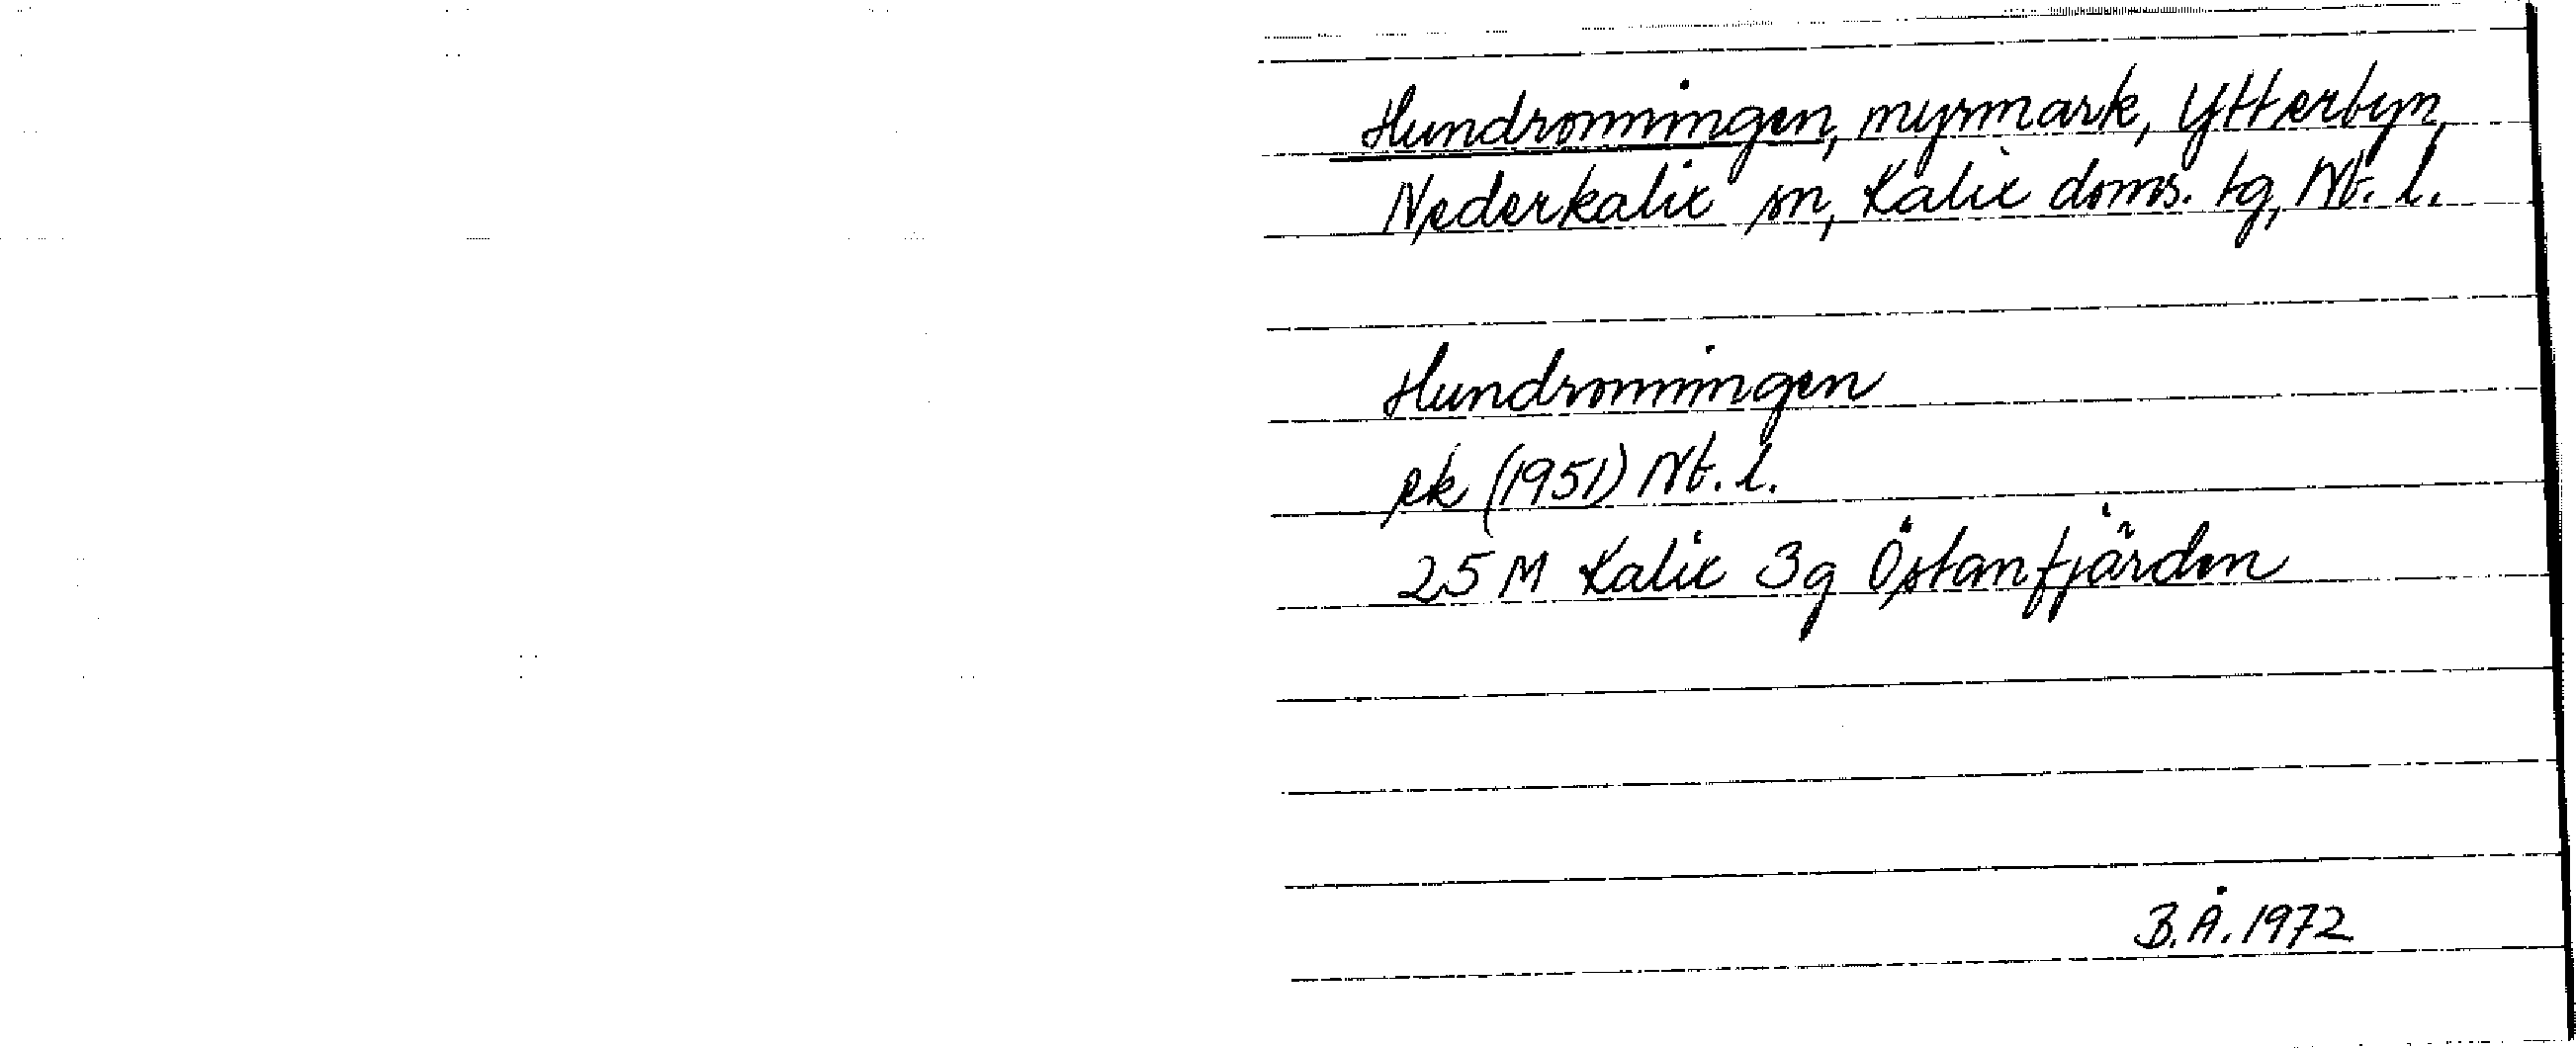 Hundronningen, myrmark, Ytterbyn,
Nederkalix sn, Kalix doms. tg, Nb. l.
Hundronningen
ek (1951) Nb. l.
25 M Kalix 3g Östanfjärden
B.Å. 1972